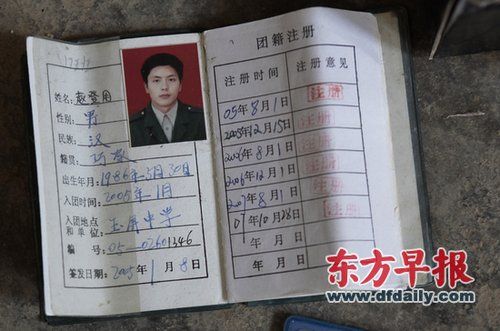 姓名:赵登用
性别:男
民族:汉
籍贯:巧家
出生年月:1986年3月30日
入团时间:2005年1月
入团地点和单位:玉屏中学
编 号 05-02601246
签发日期:2005年1月8日
团籍注册
注册时间 注册意见
05年8月1日 注册
2005年12月15日 注册
2006年8月1日 注册
2006年12月1日 注册
2007年8月1日 注册
07年10月28日 注册
年 月 日
年 月 日
东方早报
www.dfdaily.com